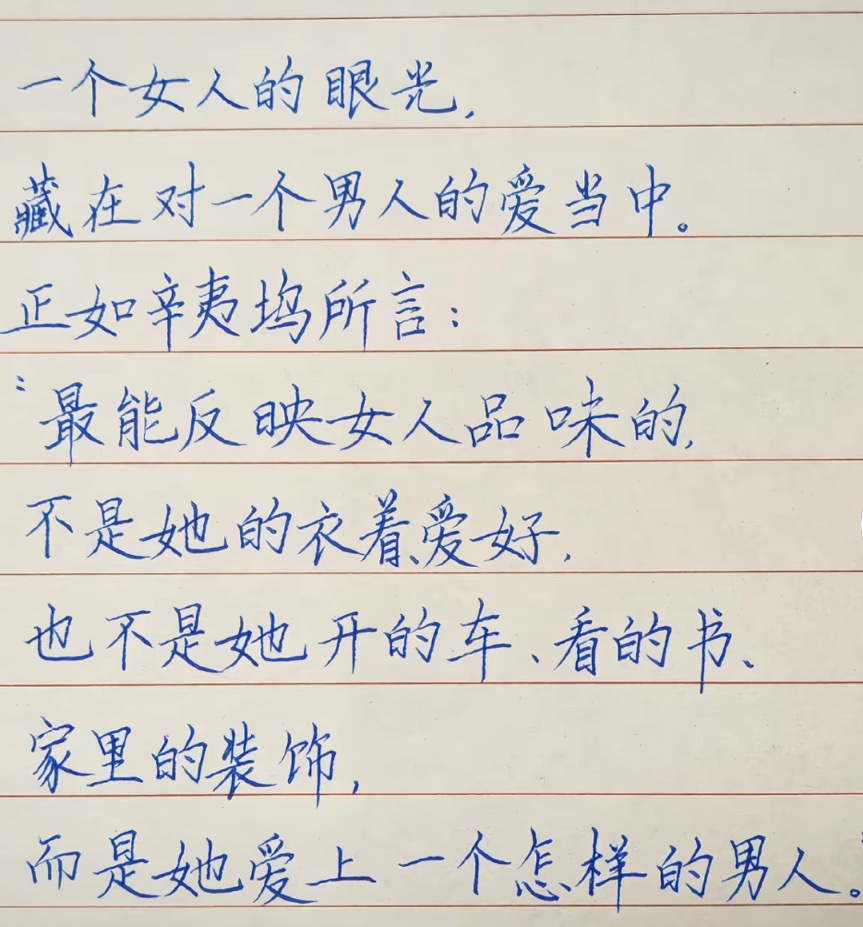 一个女人的眼光,
藏在对一个男人的爱当中。
正如辛夷坞所言:
“最能反映女人品味的,
不是她的衣着、爱好,
也不是她开的车、看的书、
家里的装饰,
而是她爱上一个怎样的男人。”